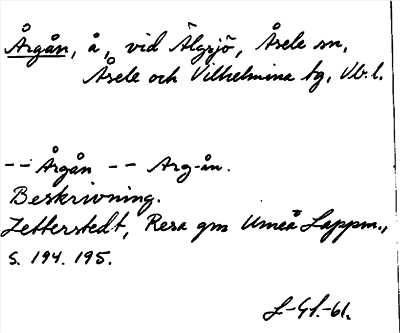 Årgån, å, vid Älgsjö, Åsele sn,
Åsele och Vilhelmina tg, Vb. l.
-- Årgån -- Arg-ån.
Beskrivning.
Zetterstedt, Resa gm Umeå Lappm.,
S. 194. 195.